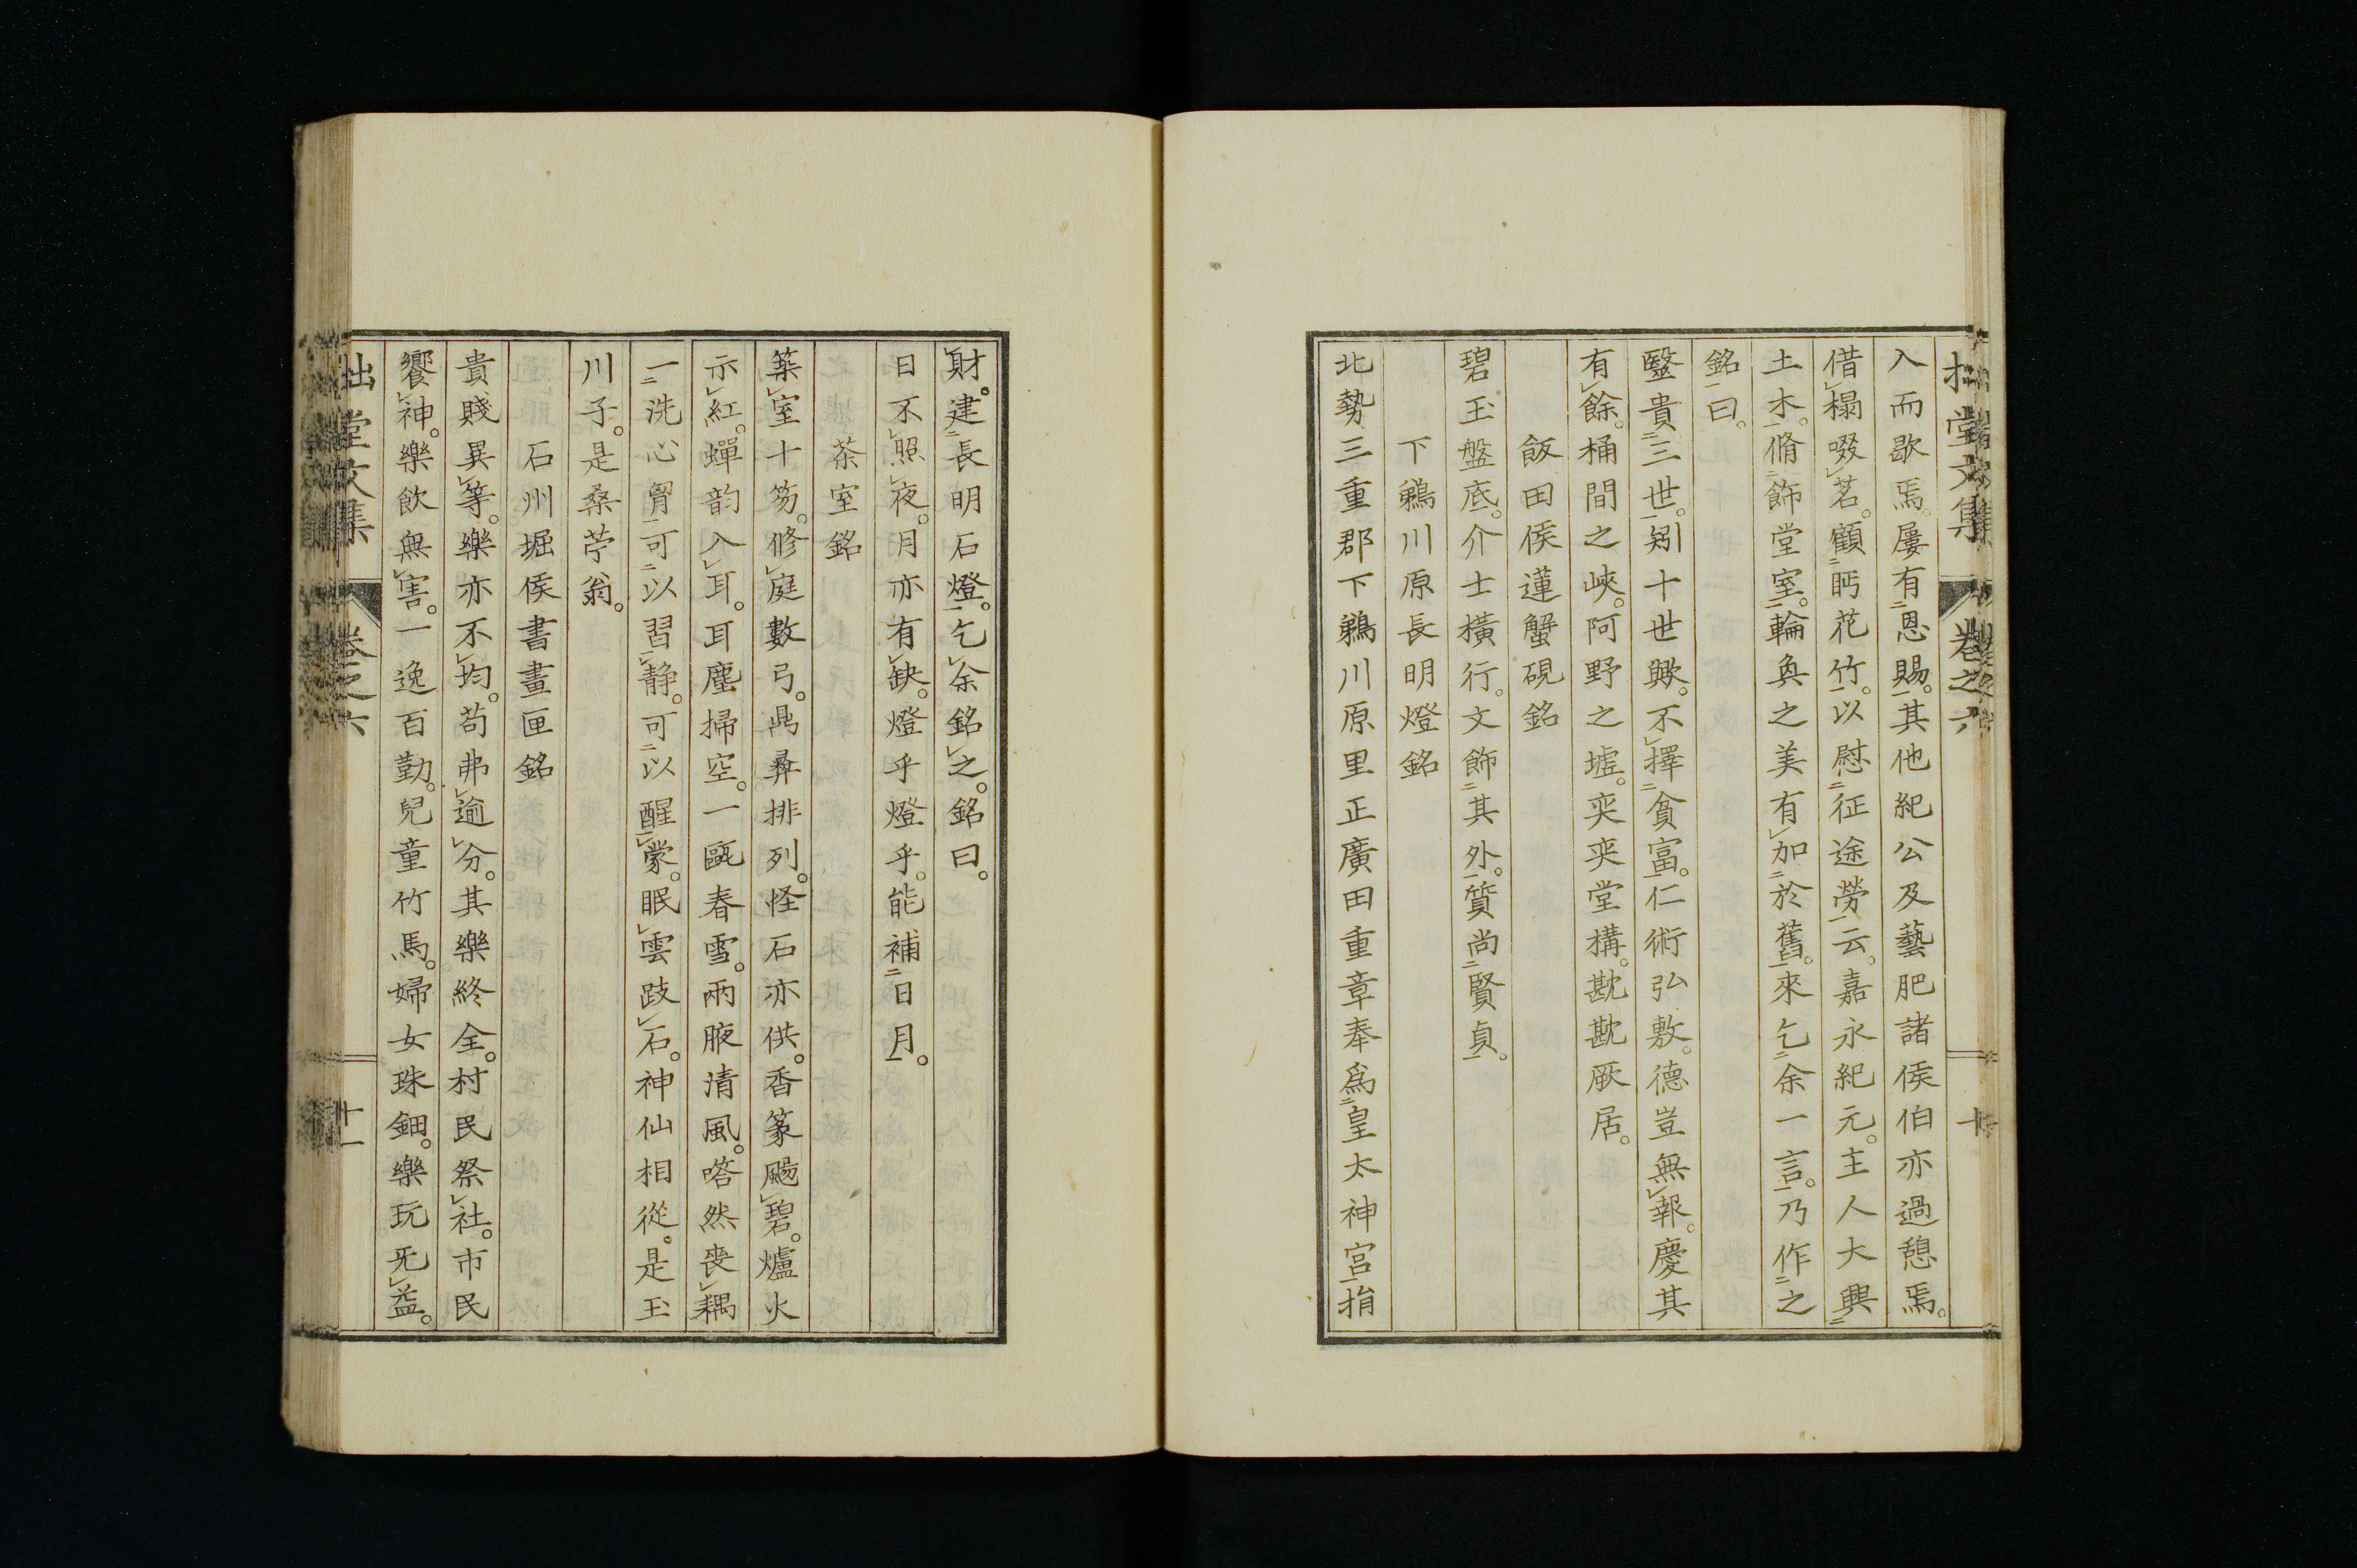 拙堂文集 卷之六 十
入而歇焉。屢有恩賜。其他紀公及藝肥諸侯伯亦過憩焉。
借榻啜茗。顧眄花竹。以慰征途勞云。嘉永紀元。主人大興
土木。脩飾堂室。輪奐之美有加於舊。來乞余一言。乃作之
銘曰。
醫貴三世。矧十世歟。不擇貧富。仁術弘敷。德豈無報。慶其
有餘。桶間之峽。阿野之墟。奕奕堂構。歁歁厥居。
飯田侯蓮蟹硯銘
碧玉盤底。介士橫行。文飾其外。質尚賢貞。
下鵜川原長明燈銘
北勢三重郡下鵜川原里正廣田重章奉爲皇太神宮捐
財。建長明石燈。乞余銘之。銘曰。
日不照夜。月亦有缺。燈乎燈乎。能補日月。
茶室銘
築室十笏。修庭數弓。鼎彝排列。怪石亦供。香篆颺碧。爐火
示紅。蟬韵入耳。耳塵掃空。一甌春雪。兩腋清風。嗒然喪耦
一洗心胷。可以習靜。可以醒蒙。眠雲跂石。神仙相從。是玉
川子。是桑苧翁。
石州堀侯書畫匣銘
貴賤異等。樂亦不均。苟弗逾分。其樂終全。村民祭社。市民
饗神。樂飲無害。一逸百勤。兒童竹馬。婦女珠鈿。樂玩无益。
拙堂文集 卷之六 十一